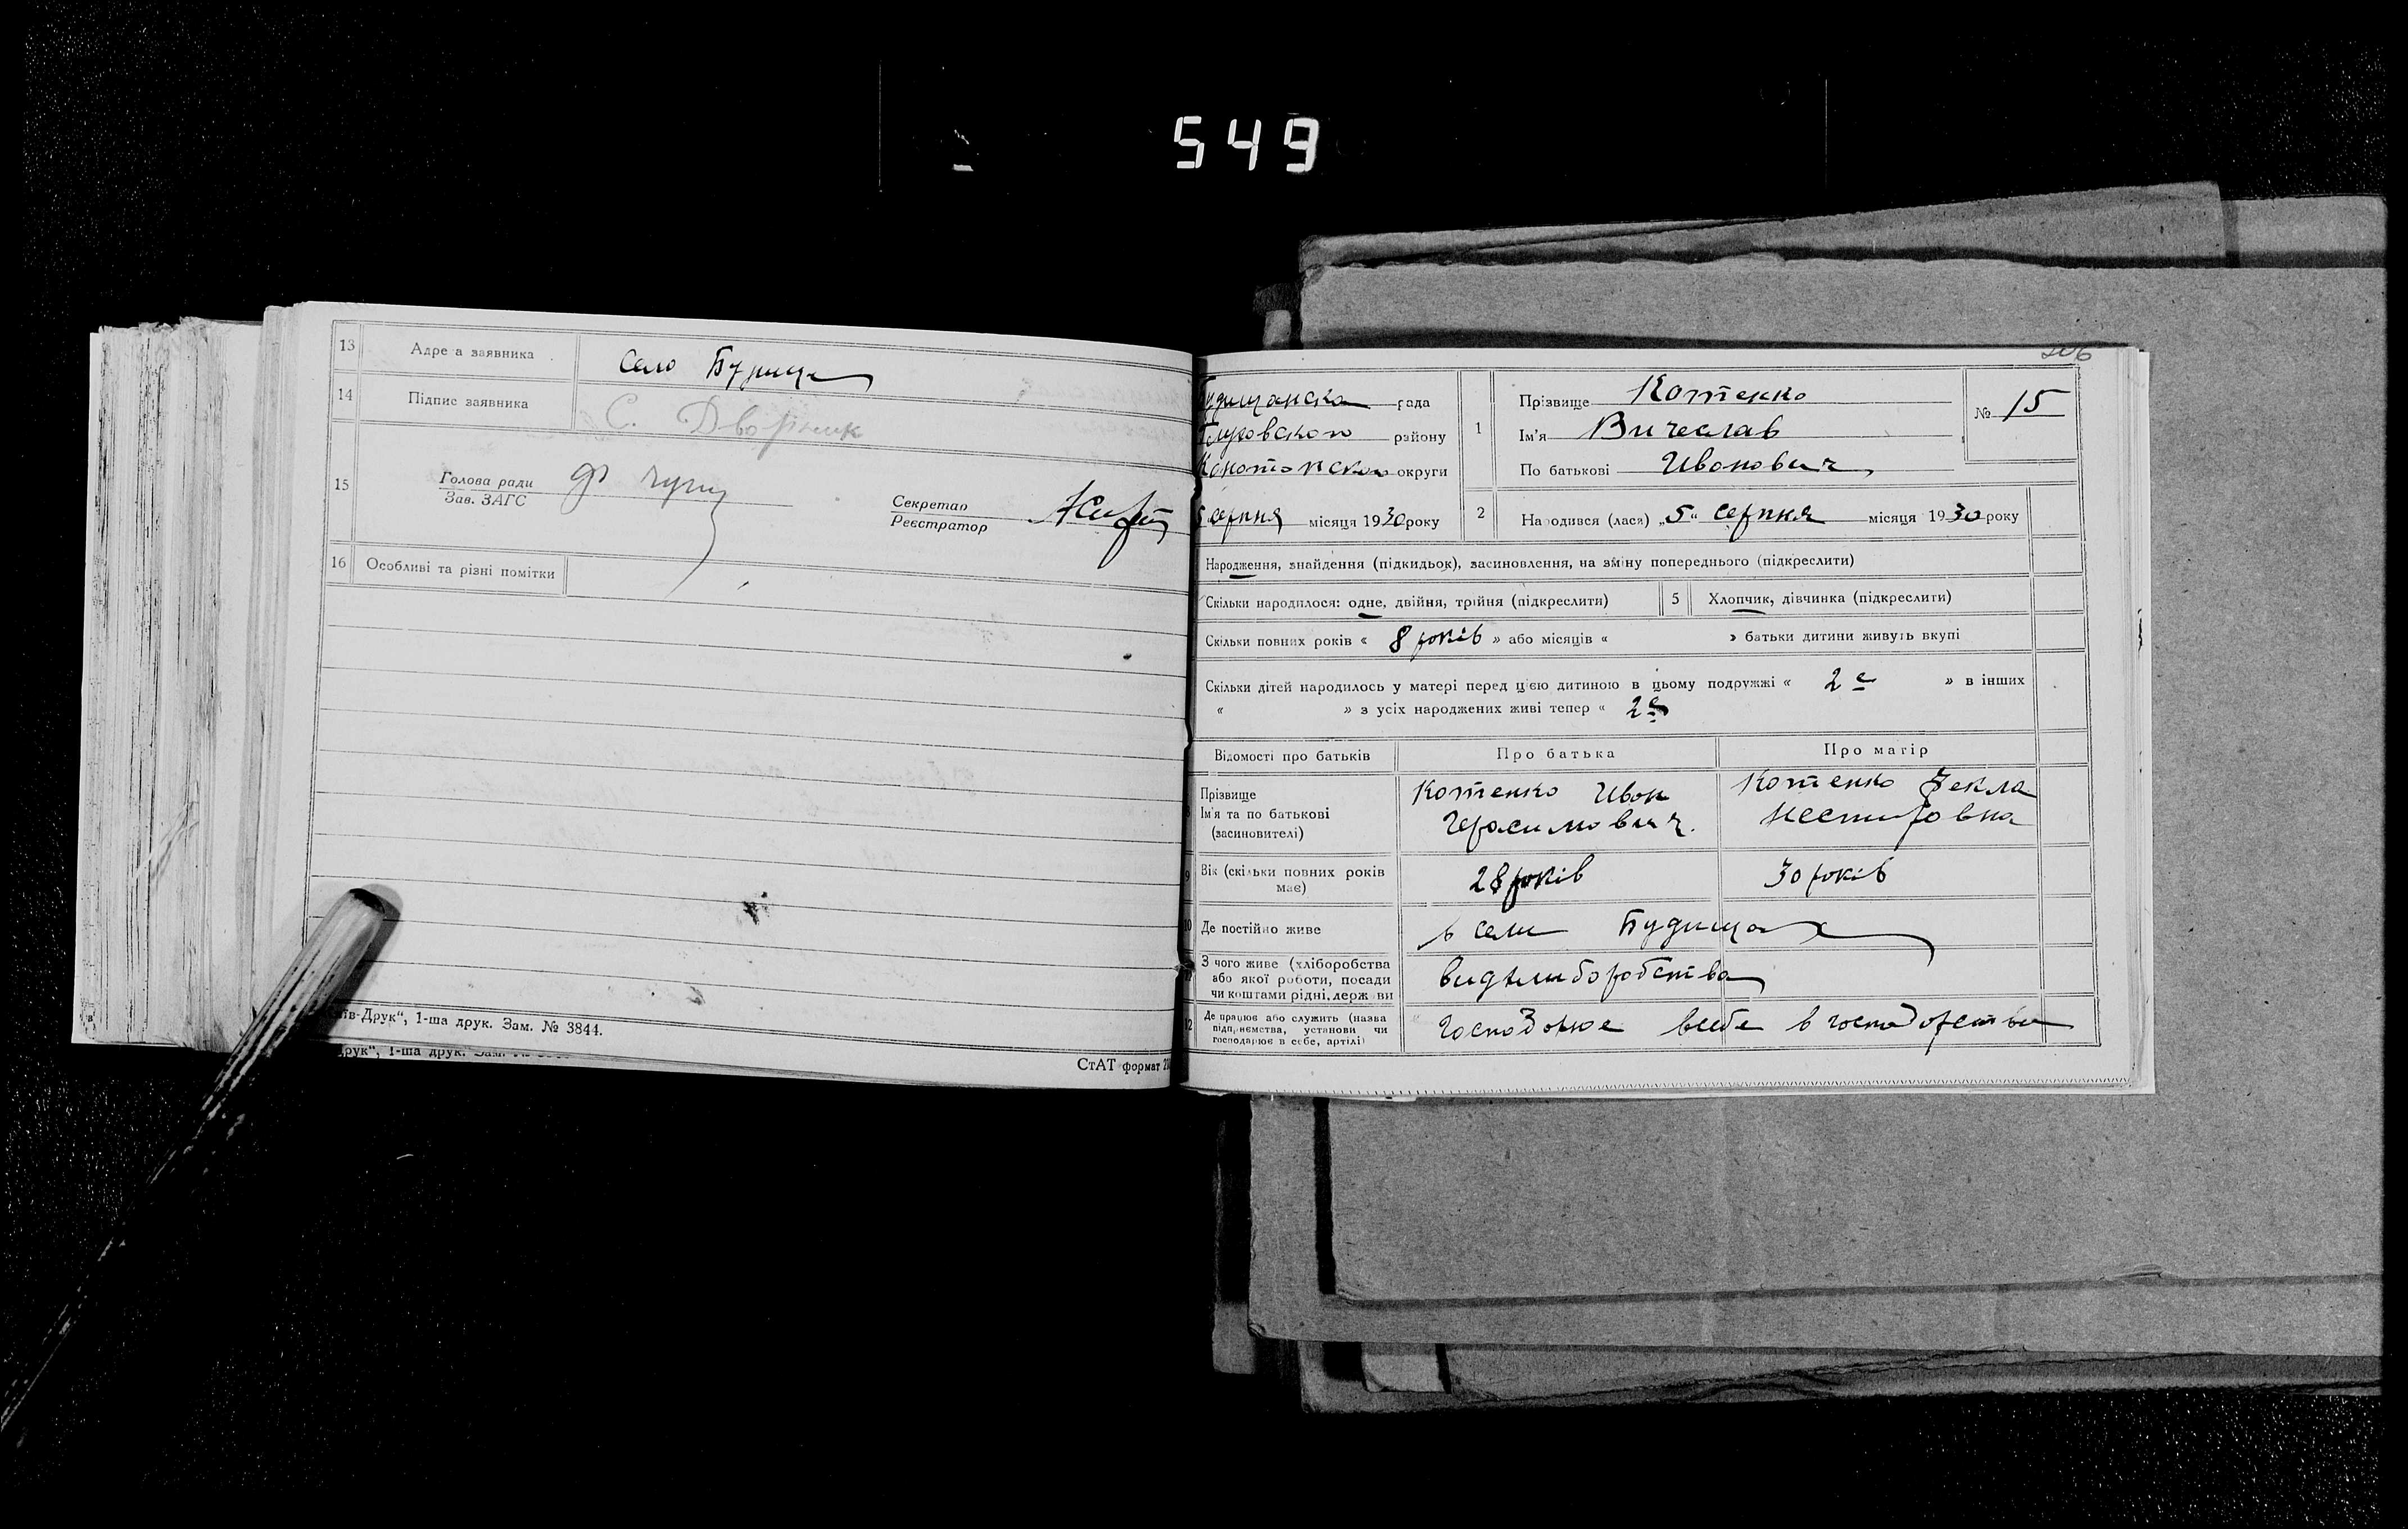 549
13 Адреса заявника Село Будища
14 Підпис заявника С. Дворіник
15 Голова ради
Зав. ЗАГС
Секретар
Реєстратор
16 Особливі та різні помітки
Друк“, 1-ша друк. Зам. № 3844.
друк“, 1-ша друк.
СтАТ формат
206
Будищанска рада
Глуховского району
Конотопского округи
5 серпня місяця 1930 року
1 Прізвище Котенко
Ім'я Вичеслав
По батькові Ивонович
№ 15
2 Народився (лася) „5“ серпня місяця 1930 року
Народження, знайдення (підкидьок), засиновлення, на зміну попереднього (підкреслити)
Скільки народилося: одне, двійня, трійня (підкреслити) 5 Хлопчик, дівчинка (підкреслити)
Скільки повних років « 8 років » або місяців « » батьки дитини живуть вкупі
Скільки дітей народилось у матері перед цією дитиною в цьому подружжі « 2е » в інших
« » з усіх народжених живі тепер « 2е
Відомості про батьків Про батька Про матір
Прізвище
Ім'я та по батькові
(засиновителі)
Котенко Ивон
Герасимович.
Котенко Фекла
Нестировна
9 Вік (скільки повних років
має)
28 років 30 років
10 Де постійно живе в сели Будищах
З чого живе (хліборобства
або якої роботи, посади
чи коштами рідні, держави
видхлиборобства
12 Де працює або служить (назва
підприємства, установи чи
господарює в себе, артілі)
Господорює всебе в господорстви